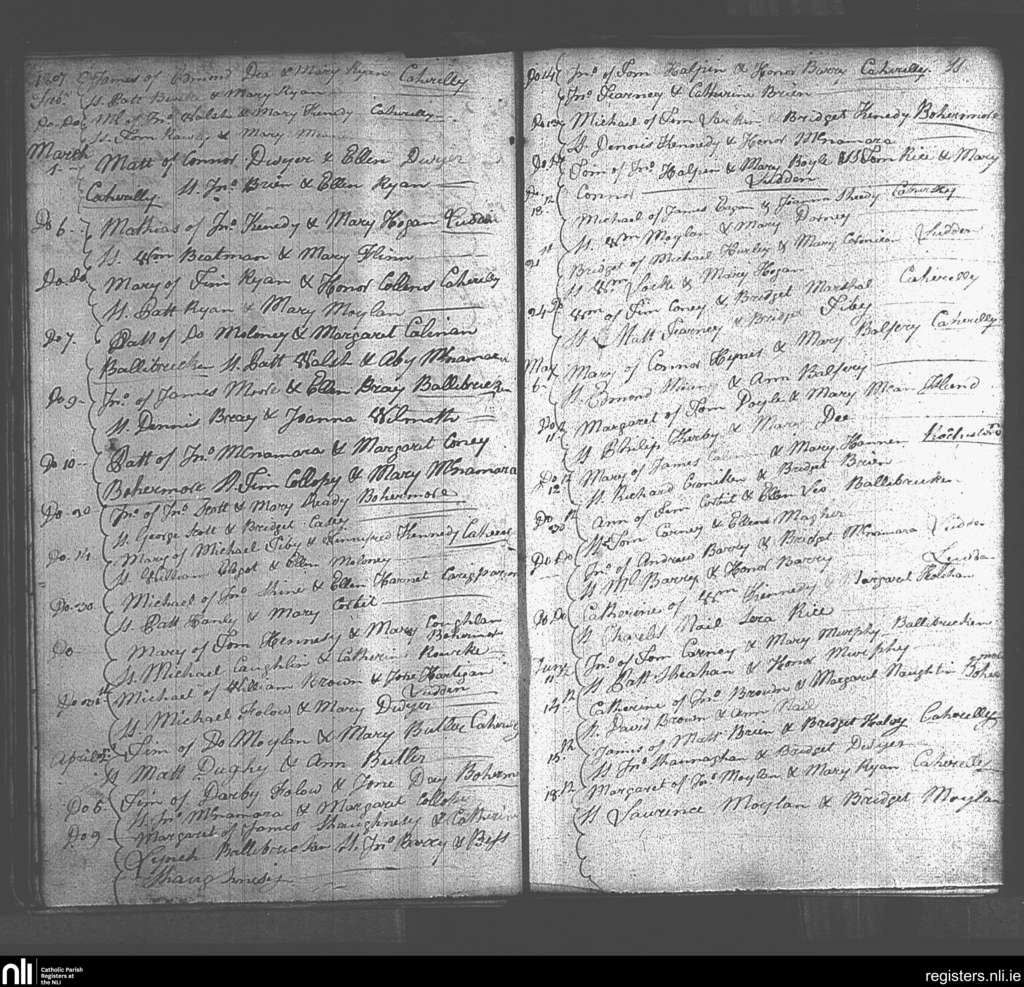 1807 James of Edmond Dea & Mary Ryan Caherelly
St. Patt Burke & Mary Ryan
Do Do Ml. of Jno. Walsh & Mary Kenedy Caherelly
St. Tom Rawly & Mary
March
1 Matt of Connor Dwyer & Ellen Dwyer
Caherelly St. Jno. Brien & Ellen Ryan
Do 6 Mathias of Jno. Kenedy & Mary Hogan Ludden
St. Wm Beatman & Mary Flinn
Do Do Mary of Tim Ryan & Honor Collins Caherelly
St. Patt Ryan & Mary Moylan
Do 7 Patt of Do Moloney & Margaret Calinan
Ballibrucken St. Patt Walsh & Aby McNamara
Do 9 Jno. of James More & Ellen Breay Ballebrucken
St. Dennis Breay & Joanna Wilmoth
Do 10 Patt of Jno. McNamara & Margaret Coney
Bohermore St. Tim Collopy & Mary McNamara
Do 20 Jno. of Jno. Scott & Mary Ready Bohermore
St. George Scott & Bridget Casey
Do 14 Mary of Michael Fihy & Winnifred Kennedy
St. William Pigot & Ellen Moloney
Do 30 Michael of Jno. Shine & Ellen Harnet
St. Patt Hanly & Mary Corbet
Do Mary of Tom Hennesy & Mary Coughlan
St. Michael Caughlin & Catherin Rourke Bohermore
Michael of William Krown & Jone Hartigan
Ludden
St. Michael Folow & Mary Dwyer
April Tim of Do Moylan & Mary Butler
St Matt Dughy & Ann Butler
Do 6 Tim of Darby Folow & Jone Dey Boherm
St. Jno. McNamara & Margaret Collopy
Do 9 Margaret of James Shaughnesy & Catherin
Lynch Ballebrucken St. Jno. Barry & Bess
Shaughnesy
Do 14 Jno. of Tom Halpin & Honor Barry Caherelly St.
Jno. Fearney & Catherine Brien
Michael of Tim Larkin & Bridget Kenedy Bohermore
St. Dennis Kennedy & Honor McNamara
Tom of Jno. Halpin & Mary Boyle St Tom Rice & Mary
Connor Ludden
18 Michael of James Eagan & Joanna Sheedy Caherelly
St. Wm Moylan & Mary Dorney
21 Bridget of Michael Hurley & Mary Ludden
St. Wm Locke & Mary Hogan
24 Wm of Tim Coney & Bridget Marshal Caherelly
St Matt Fearney & Bridget Fihey
May
6 Mary of Connor Hynes & Mary Balfery Caherelly
St. Edmond & Ann Balfrey
Do
11 Margaret of Tom Doyle & Mary
St Philip Kirby & Mary Dee
Do
12 Mary of James & Mary Hannen
St. Richard Croniken & Bridget Brien
Do
30 Ann of Tim Corbit & Ellen Leo Ballebrucken
St Tom Carney & Ellen Magher
Do Do Jno. of Andrew Barry & Bridget McNamara Ludden
St Ml. Barry & Honor Barry
Do Do Catherine of Wm Kennedy & Margaret Holohan Ludden
St Charles Nail Lera Rice
June
11 Jno. of Tom Carney & Mary Murphy Ballibrucken
St Patt Sheahan & Honor Murphey
14 Catherine of Jno. Brown & Margaret Naughtin Bohermore
St. David Brown & Ann Nail
15 James of Matt Brien & Bridget Healy Caherelly
St Jno. Shannaghan & Bridget Dwyer
18 Margaret of Jas. Moylan & Mary Ryan Caherelly
St Lawrence Moylan & Bridget Moylan
nli Catholic Parish
Registers at
the NLI
registers.nli.ie